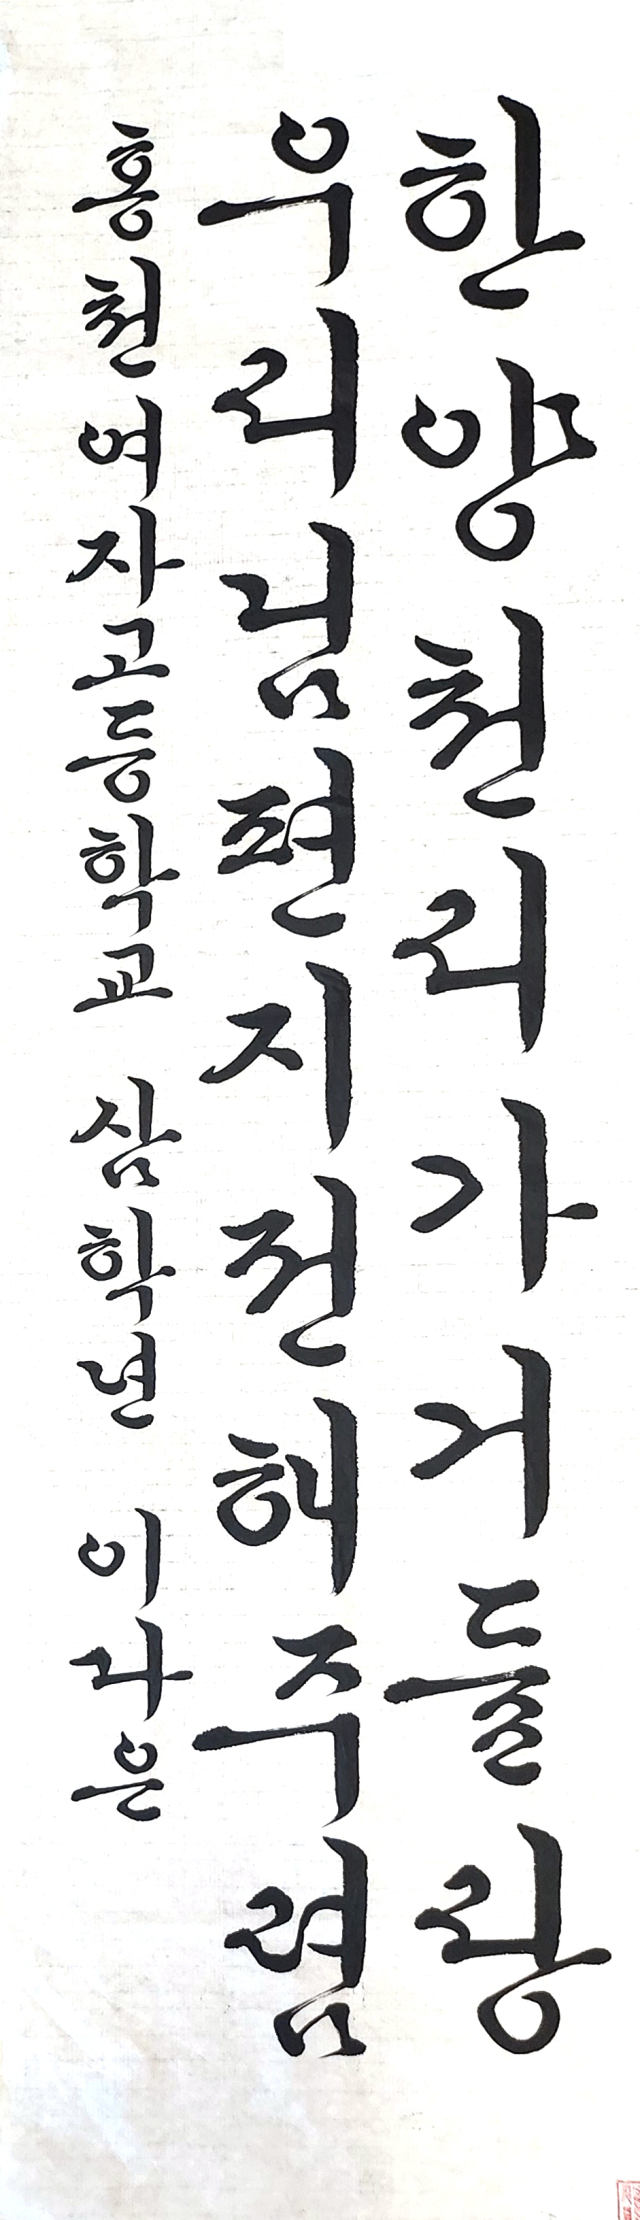 한양천리가거들랑
우리님편지전해주렴
홍천여자고등학교 삼학년 이나은